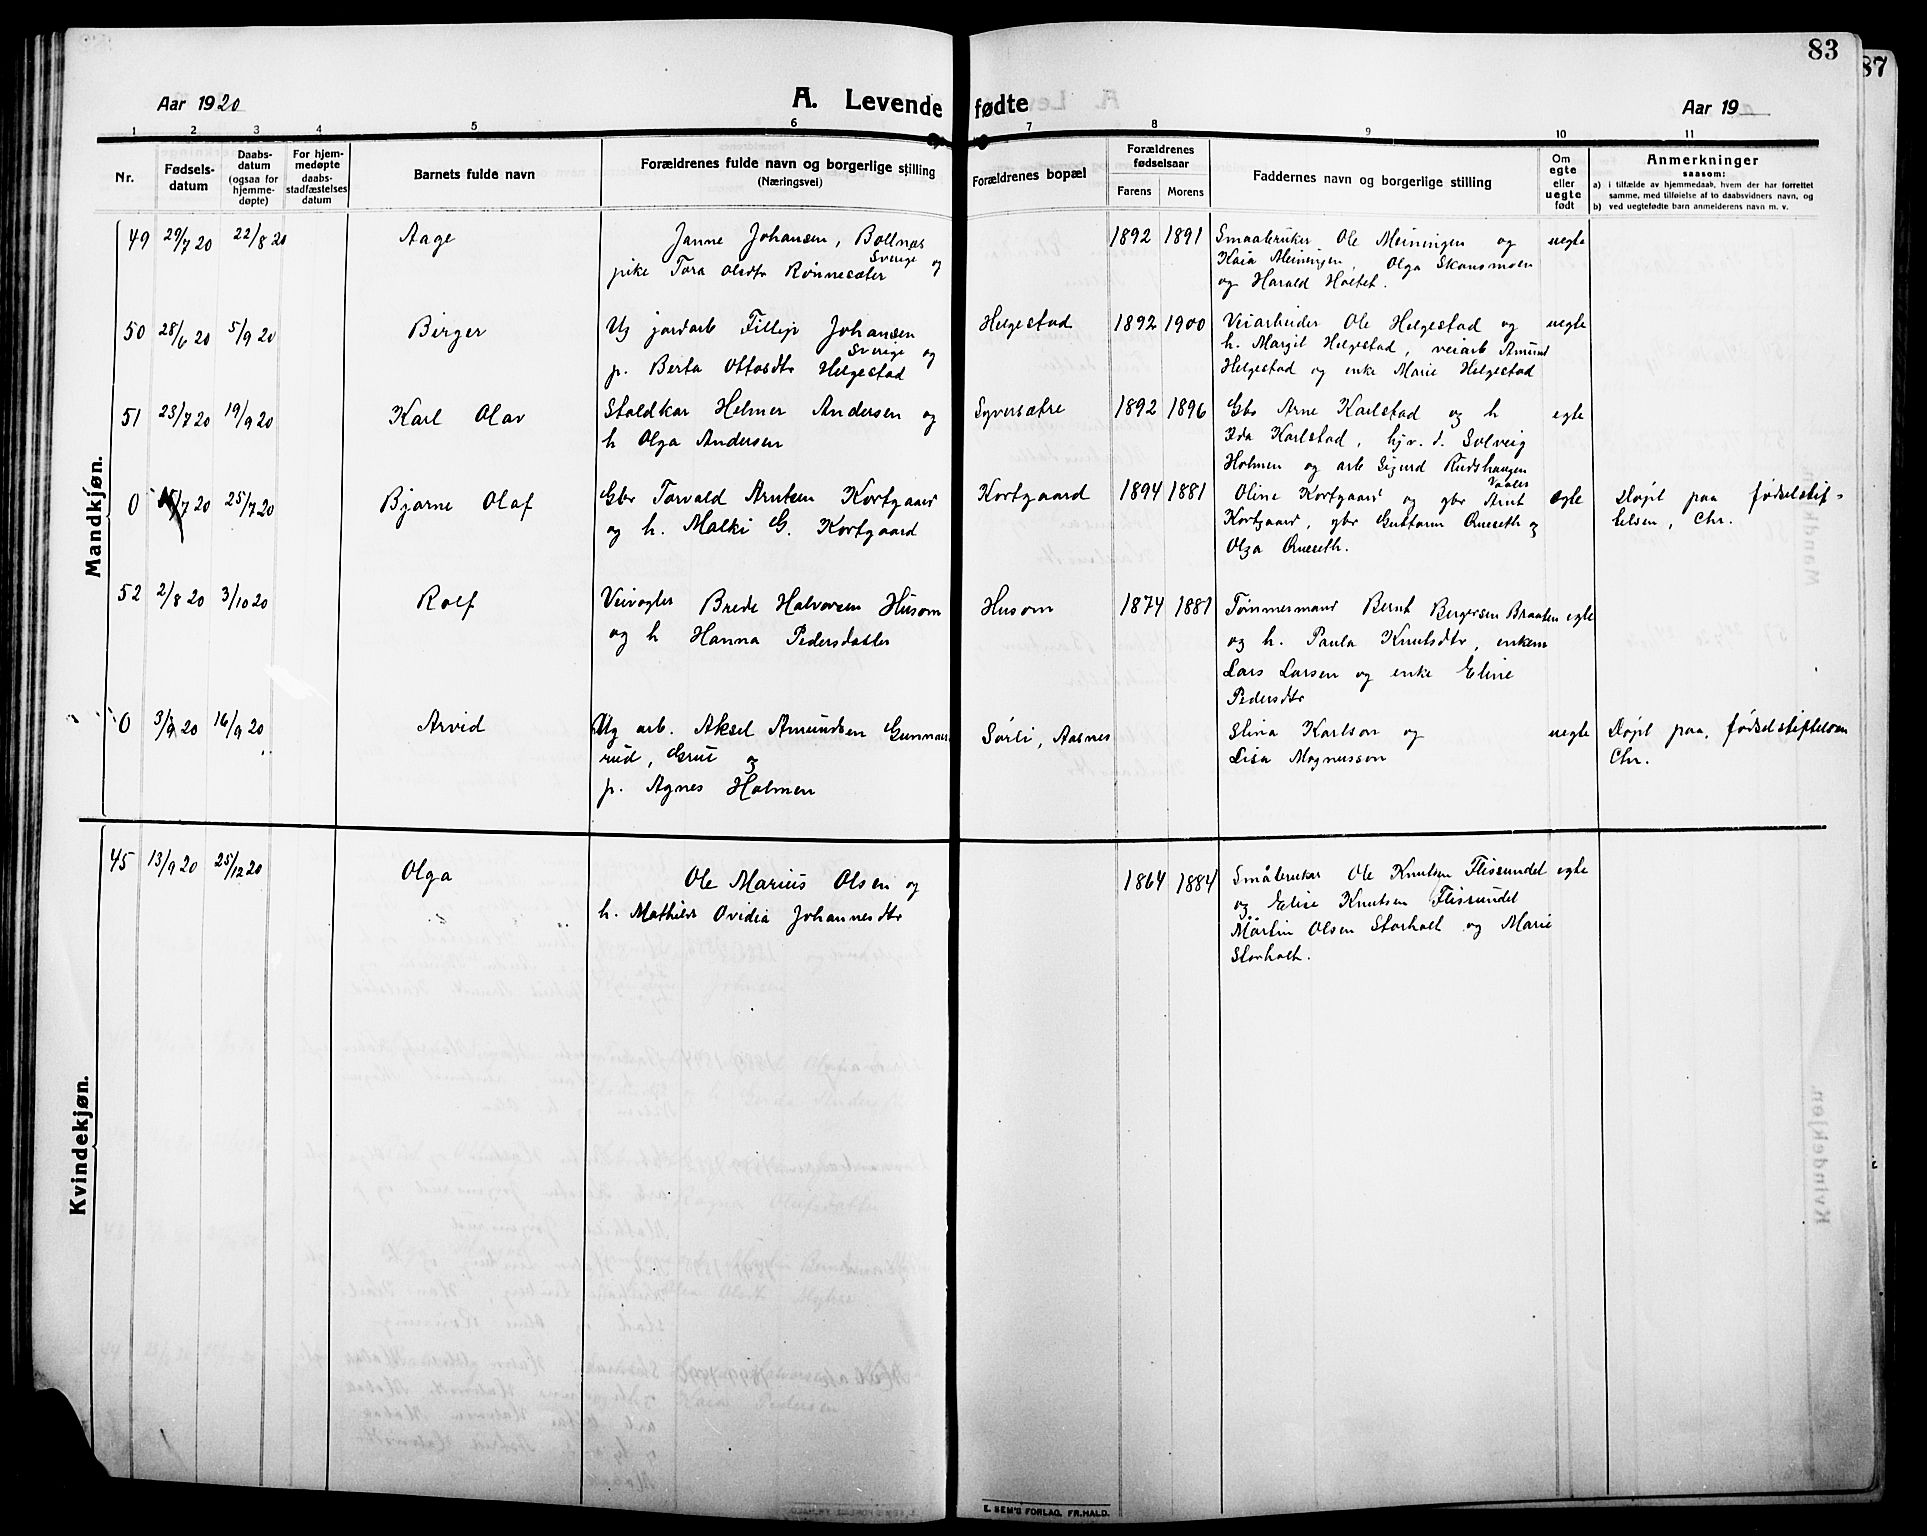 83
87
Aar 1920
A. Levende fødte
Aar 19
1 2 3 4 5 6 7 8 9 10 11
Nr.
Fødsels-
datum
Daabs-
datum
(ogsaa for
hjemme-
døpte)
For hjem-
medøpte
daabs-
stadfæstelses
datum
Barnets fulde navn
Forældrenes fulde navn og borgerlige stilling
(Næringsvei)
Forældrenes bopæl
Forældrenes
fødselsaar
Farens Morens
Faddernes navn og borgerlige stilling
Om
egte
eller
uegte
født
Anmerkninger
saasom:
a) i tilfælde av hjemmedaab, hvem der har forrettet
samme, med tilføielse af to daabsvidners navn, og
b) ved uegtefødte barn anmelderens navn m. v.
Mandkjøn.
49 29/7 20 22/8 20 Aage
Janne Johansen, Bollnæs
Sverige og
pike Tora Olsdtr Rønnesæter
1892 1891
Smaabruker Ole Meiningen og
Kaia Meiningen, Olga Skansmoen
og Harald Haltet.
uegte
50 28/6 20 5/9 20 Birger
Ug jordarb Fillip Johansen
Sverige og
p. Berta Ottosdtr Helgestad
Helgestad
1892 1900
Veiarbeider Ole Helgestad og
h. Margit Helgestad, veiarb Amund
Helgestad og enke Marie Helgestad
uegte
51 23/7 20 19/9 20 Karl Olav
Staldkar Helmer Andersen og
h Olga Andersen
Syversætre
1892 1896
Gbr Arne Karlstad og h
Ida Karlstad, hjv. d. Solveig
Holmen og arb Sigurd Rudshaugen
Vaaler
egte
0 /7 20 25/7 20 Bjarne Olaf
Gbr Torvald Arntsen Kortgaard
og h. Malki G. Kortgaard
Kortgaard
1894 1881
Oline Kortgaard og gbr Arnt
Kortgaard, gbr Guttorm Overseth og
Olga Overseth.
egte
Døpt paa fødselstif-
telsen, Chr.
52 2/8 20 3/10 20 Rolf
Veivogter Brede Halvorsen Husom
og h Hanna Pedersdatter
Husom
1874 1881
Tømmermand Bernt Bergersen Braaten
og h. Paula Knutsdtr, enkem
Lars Larsen og enke Eline
Pedersdtr
egte
0 3/9 20 16/9 20 Arvid
Ug arb. Aksel Amundsen Gunnars
rud, Grue og
p. Agnes Holmen
Sørli, Aasnes
Stina Karlson og
Lisa Magnusson
uegte
Døpt paa fødselstiftelsen
Chr.
Kvindekjøn.
45 13/9 20 25/12 20 Olga
Ole Marius Olsen og
h. Mathilde Ovidia Johannesdtr
1864 1884
Småbruker Ole Knutsen Flissundet
og Elise Knutsen Flissundet
Martin Olsen Storholt og Marie
Storholt.
egte
E. SEM'S FORLAG, FR.HALD.